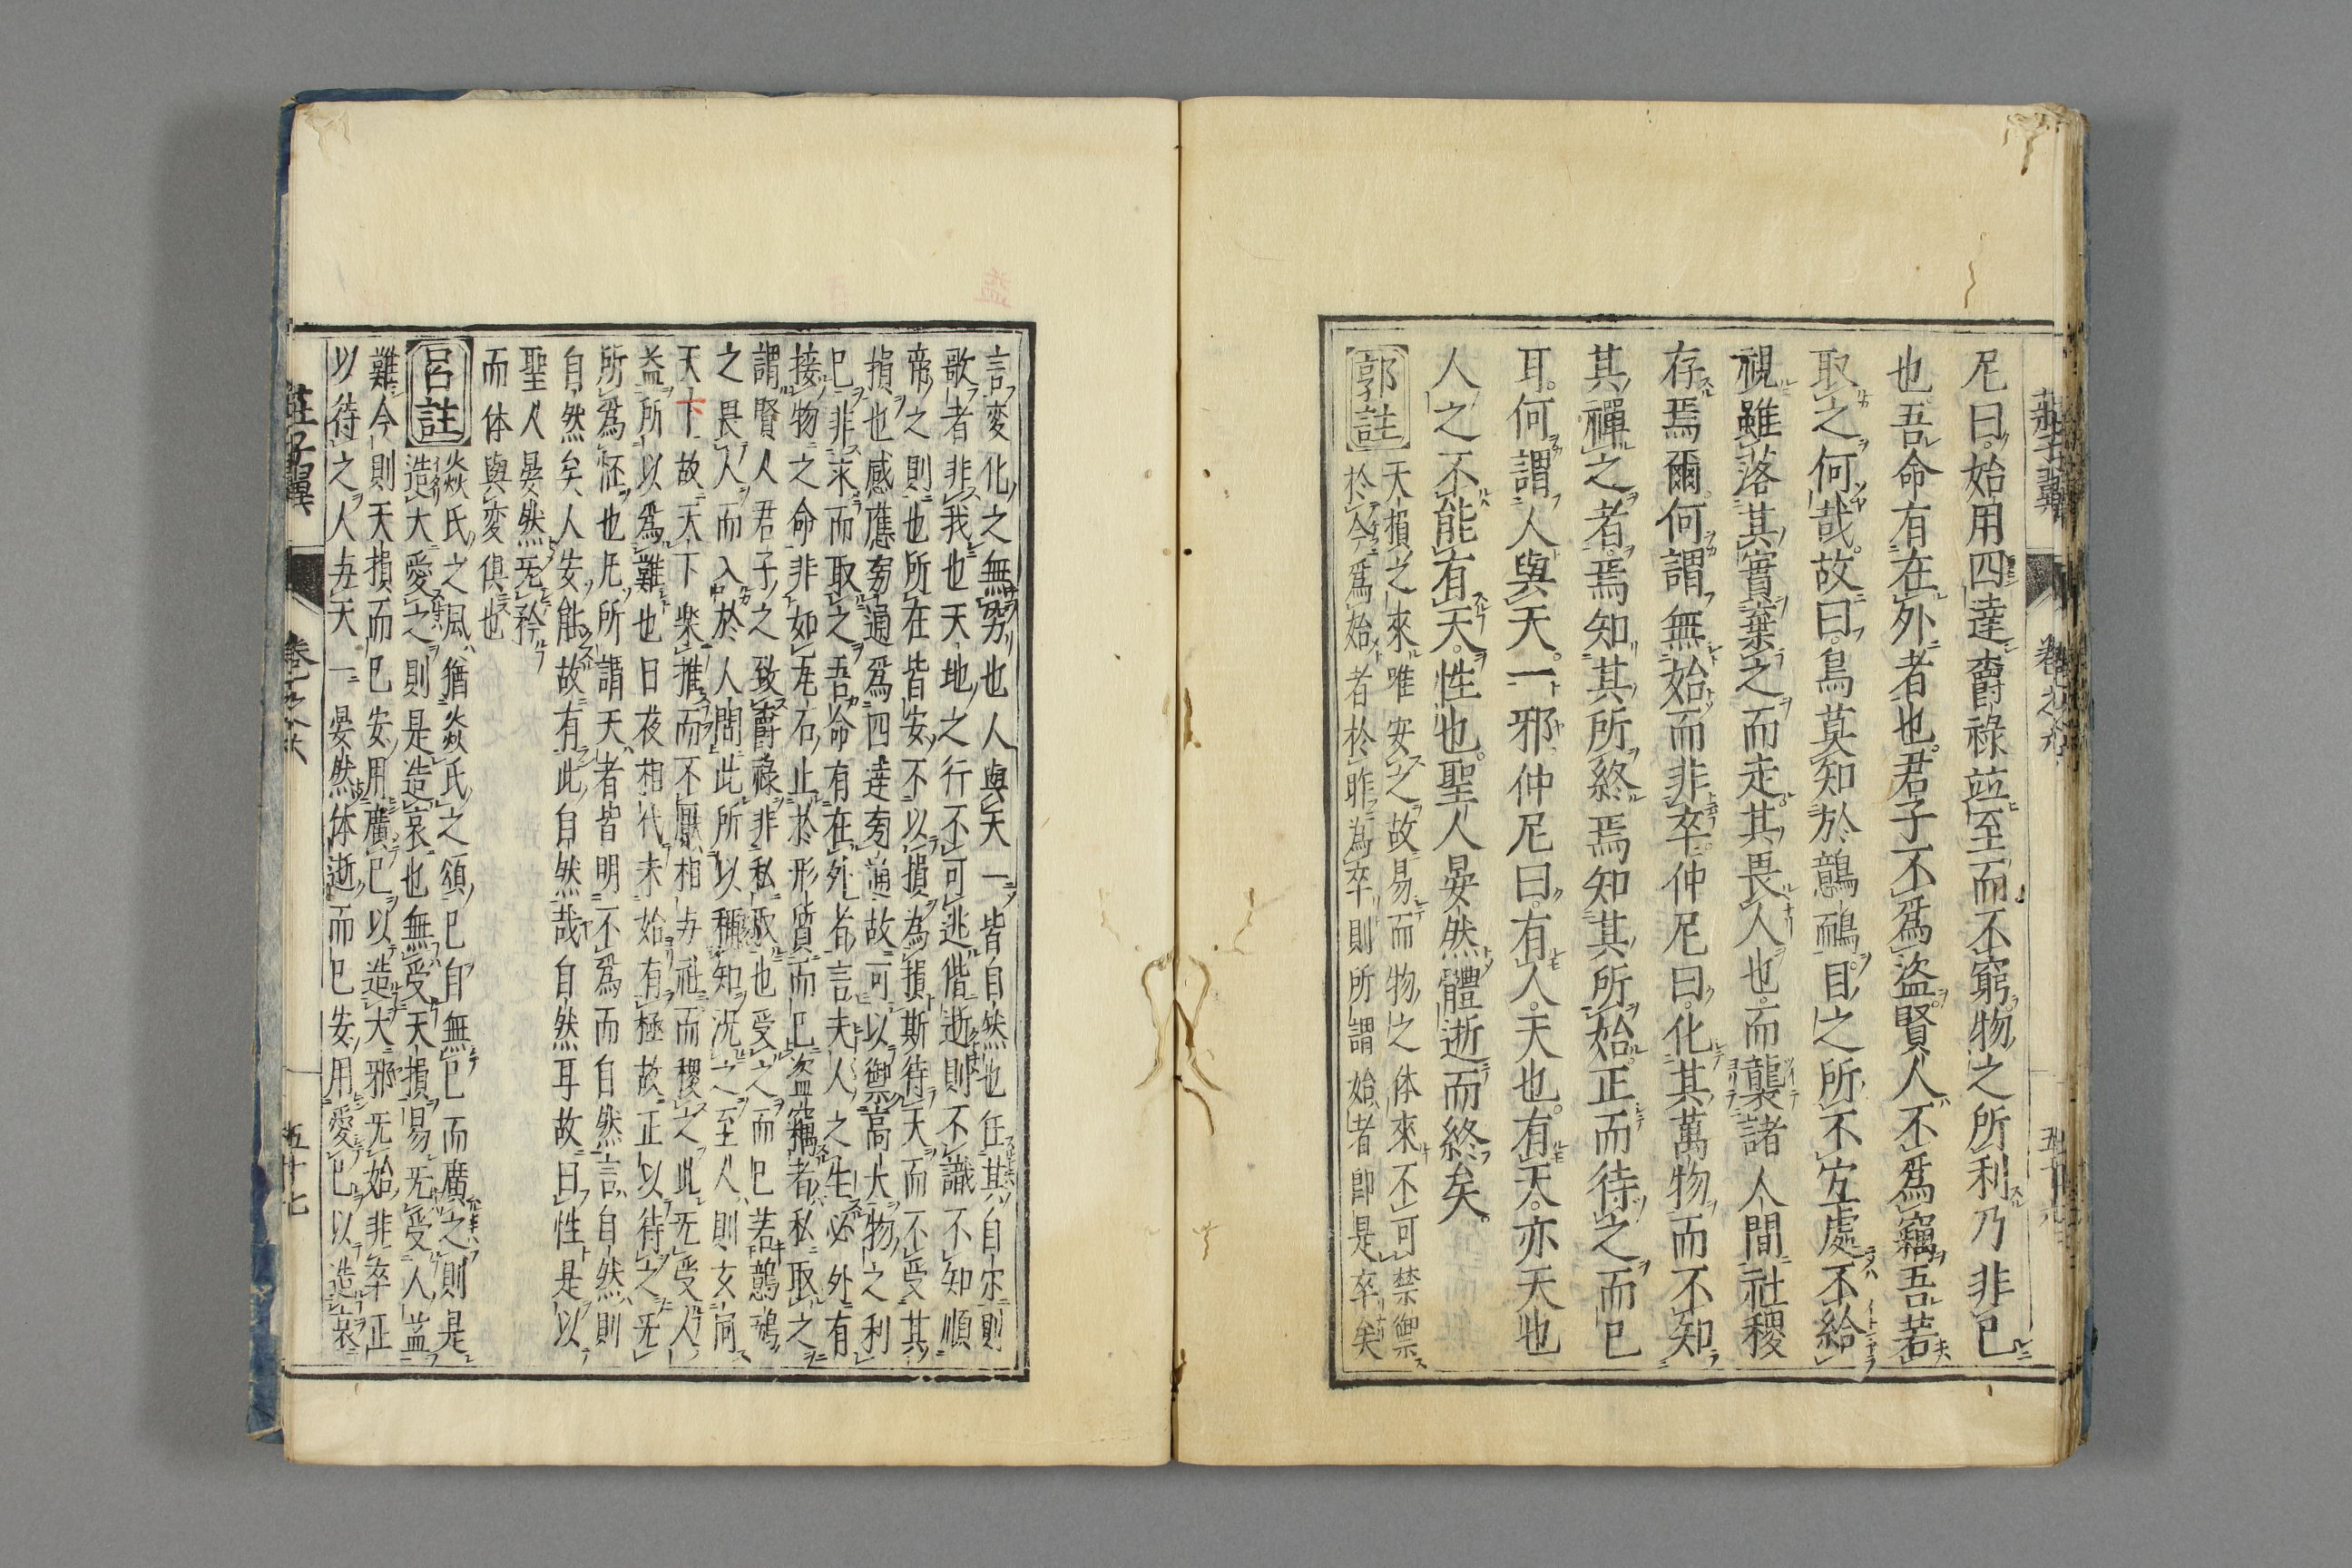 尼曰。始用四達爵祿竝至而不窮。物之所利乃非已
也。吾命有在外者也。君子不爲盜。賢人不爲竊。吾若
取之何哉。故曰。鳥莫知於鷾鴯。目之所不宜處不給
視。雖落其實棄之而走。其畏人也。而襲諸人間社稷
存焉爾。何謂無始而非卒。仲尼曰。化其萬物而不知
其禪之者。焉知其所終。焉知其所始。正而待之而已
耳。何謂人與天一邪。仲尼曰。有人。天也。有天。亦天也
人之不能有天。性也。聖人晏然體逝而終矣。
郭註
天損之來唯安之故易而物之体來不可禁禦
於今爲始者於昨為卒則所謂始者即是卒矣
言変化之無窮也人與天一皆自然也任其自尓則
歌者非我也天地之行不可逃偕逝則不識不知順
帝之則也所在皆安不以損為損斯待天而不受其
損也感應旁通爲四達旁通故可以御高大物之利
已非求而取之吾命有在外者言夫人之生必外有
接物之命非如瓦石止於形質而已盗竊者私取之
謂賢人君子之致爵祿非私取也受之而已若鷾鴯
之畏人而入於人間此所以稱知况之至人則玄同
天下故天下楽推而不厭相与社而稷之此旡受人
益所以爲難也日夜相代未始有極故正以待之旡
所爲怀也凢所謂天者皆明不爲而自然言自然則
自然矣人安能故有此自然哉自然耳故曰性是以
聖人晏然旡矜
而体與変俱也
呂註
焱氏之風猶焱氏之頌已自無已而廣之則是
造大愛之則是造哀也無受天損易旡受人益
難今則天損而已安用廣已以造大邪旡始非卒正
以待之人与天一晏然体逝而已安用愛已以造哀
莊子翼
卷之六
五十七